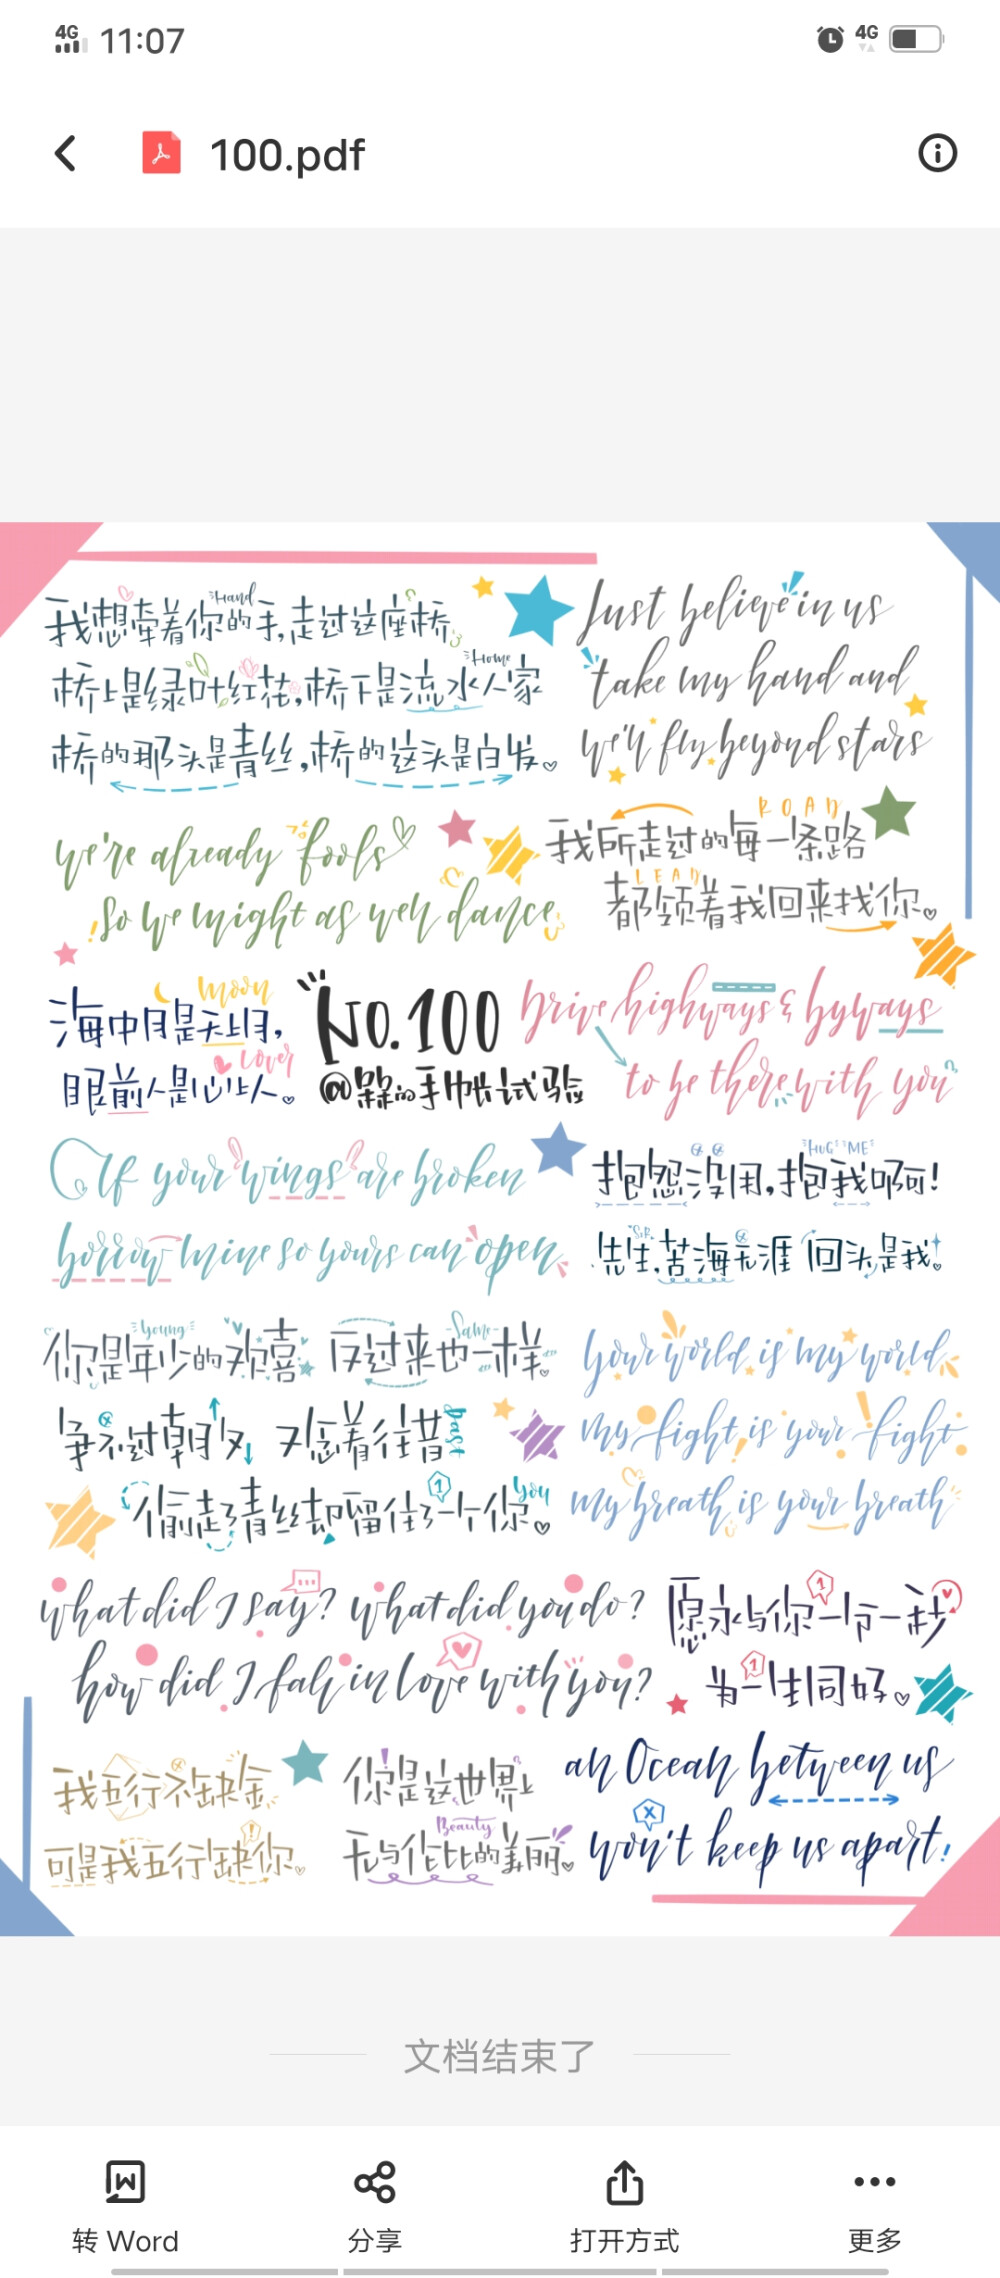 4G 11:07 4G
100.pdf
Hand
我想牵着你的手,走过这座桥
Home
桥上是绿叶红花,桥下是流水人家
桥的那头是青丝,桥的这头是白发。
Just believe in us
take my hand and
we'll fly beyond stars
we're already fools
So we might as well dance
ROAD
我所走过的每一条路
LEAD
都领着我回来找你。
moon
海中月是天上月,
Lover
眼前人是心上人。
No.100
的手帐试验
Drive highways & byways
to be there with you
If your wings are broken
borrow mine so yours can open
HUG ME
抱怨没用,抱我呵呵!
SIR
先生,苦海无涯 回头是我!
Young Same
你是年少的欢喜 反过来也一样。
争不过朝夕 又念着往昔
Past
偷走了青丝却留住了一个你。
1 You
your world is my world
my fight is your fight
my breath is your breath
what did I say? what did you do?
how did I fall in love with you?
愿永与你一分一秒
1
为一生同好。
1
我五行不缺金
可是我五行缺你。
你是这世界上
Beauty
无与伦比的美丽。
an Ocean between us
won't keep us apart!
文档结束了
转 Word 分享 打开方式 更多